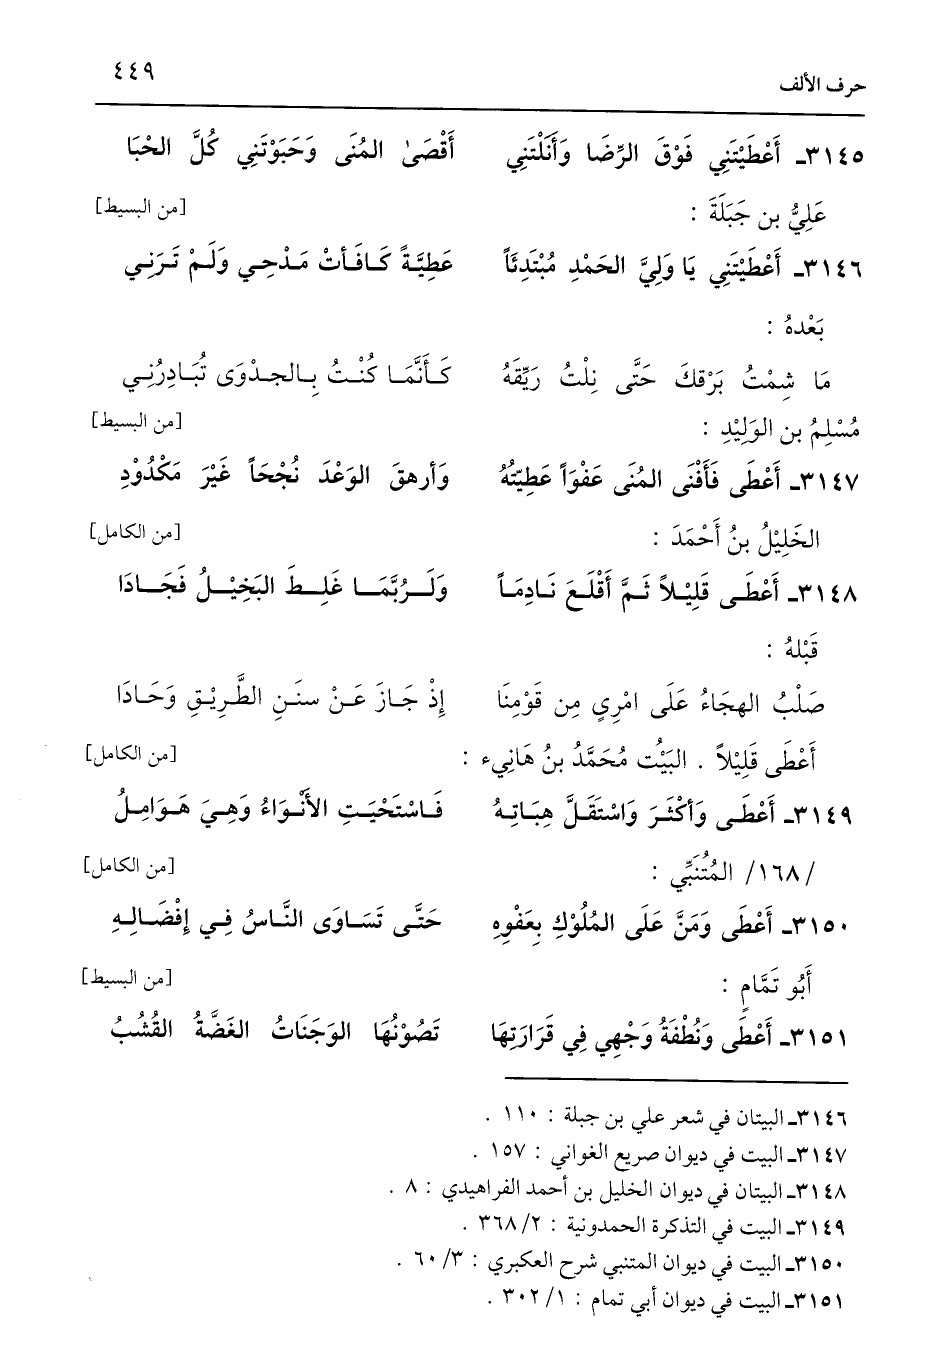 حرف الألف ٤٤٩
٣١٤٥ـ أَعْطَيْتَنِي فَوْقَ الرِّضَا وَأَنَلْتَنِي أَقْصَىٰ المُنَى وَحَبَوْتَنِي كُلَّ الحْبَا
عَلِيُّ بن جَبَلَةَ : [من البسيط]
٣١٤٦ـ أَعْطَيْتَنِي يَا وَلِيَّ الحَمْدِ مُبْتَدِئَاً عَطِيَّةً كَافَأتْ مَدْحِي وَلَمْ تَرَنِي
بَعْدهُ :
مَا شِمْتُ بَرْقكَ حَتَّى نِلْتُ رَيِّقَهُ كَأَنَّمَا كُنْتُ بِالجدْوَى تُبَادِرُنِي
مُسْلِمُ بن الوَلِيْدِ : [من البسيط]
٣١٤٧ـ أَعْطَى فَأَفْنَى المُنَى عَفْوَاً عَطِيّتُهُ وَأرهقَ الوَعْدَ نُجْحَاً غَيْرَ مَكْدُوْدِ
الخَلِيْلُ بنُ أَحْمَدَ : [من الكامل]
٣١٤٨ـ أَعْطَى قَلِيْلاً ثَمَّ أَقْلَعَ نَادِمَاً وَلَرُبَّمَا غَلِطَ البَخِيْلُ فَجَادَا
قَبْلهُ :
صَلْبُ الهِجَاءُ عَلَى امْرِي مِن قَوْمِنَا إِذْ جَازَ عَنْ سنَنِ الطَّرِيْقِ وَحَادَا
أَعْطَى قَلِيْلاً . البَيْت مُحَمَّدُ بنُ هَانِيء : [من الكامل]
٣١٤٩ـ أَعْطَى وَأَكْثَرَ وَاسْتَقَلَّ هِبَاتِهُ فَاسْتَحْيَتِ الأَنْوَاءُ وَهِيَ هَوَامِلُ
/١٦٨/ المُتَنَبِّي : [من الكامل]
٣١٥٠ـ أَعْطَى وَمَنَّ عَلَى المُلُوْكِ بِعَفْوِهِ حَتَّى تَسَاوَى النَّاسُ فِي إِفْضَالِهِ
أَبُو تَمَّامٍ : [من البسيط]
٣١٥١ـ أَعْطَى وَنُطْفَةُ وَجْهِي فِي قَرَارَتِهَا تَصُوْنُهَا الوَجَنَاتُ الغَضَّةُ القُشُبُ
٣١٤٦ـ البيتان في شعر علي بن جبلة : ١١٠ .
٣١٤٧ـ البيت في ديوان صريع الغواني : ١٥٧ .
٣١٤٨ـ البيتان في ديوان الخليل بن أحمد الفراهيدي : ٨ .
٣١٤٩ـ البيت في التذكرة الحمدونية : ٣٦٨/٢ .
٣١٥٠ـ البيت في ديوان المتنبي شرح العكبري : ٦٠/٣ .
٣١٥١ـ البيت في ديوان أبي تمام : ٣٠٢/١ .